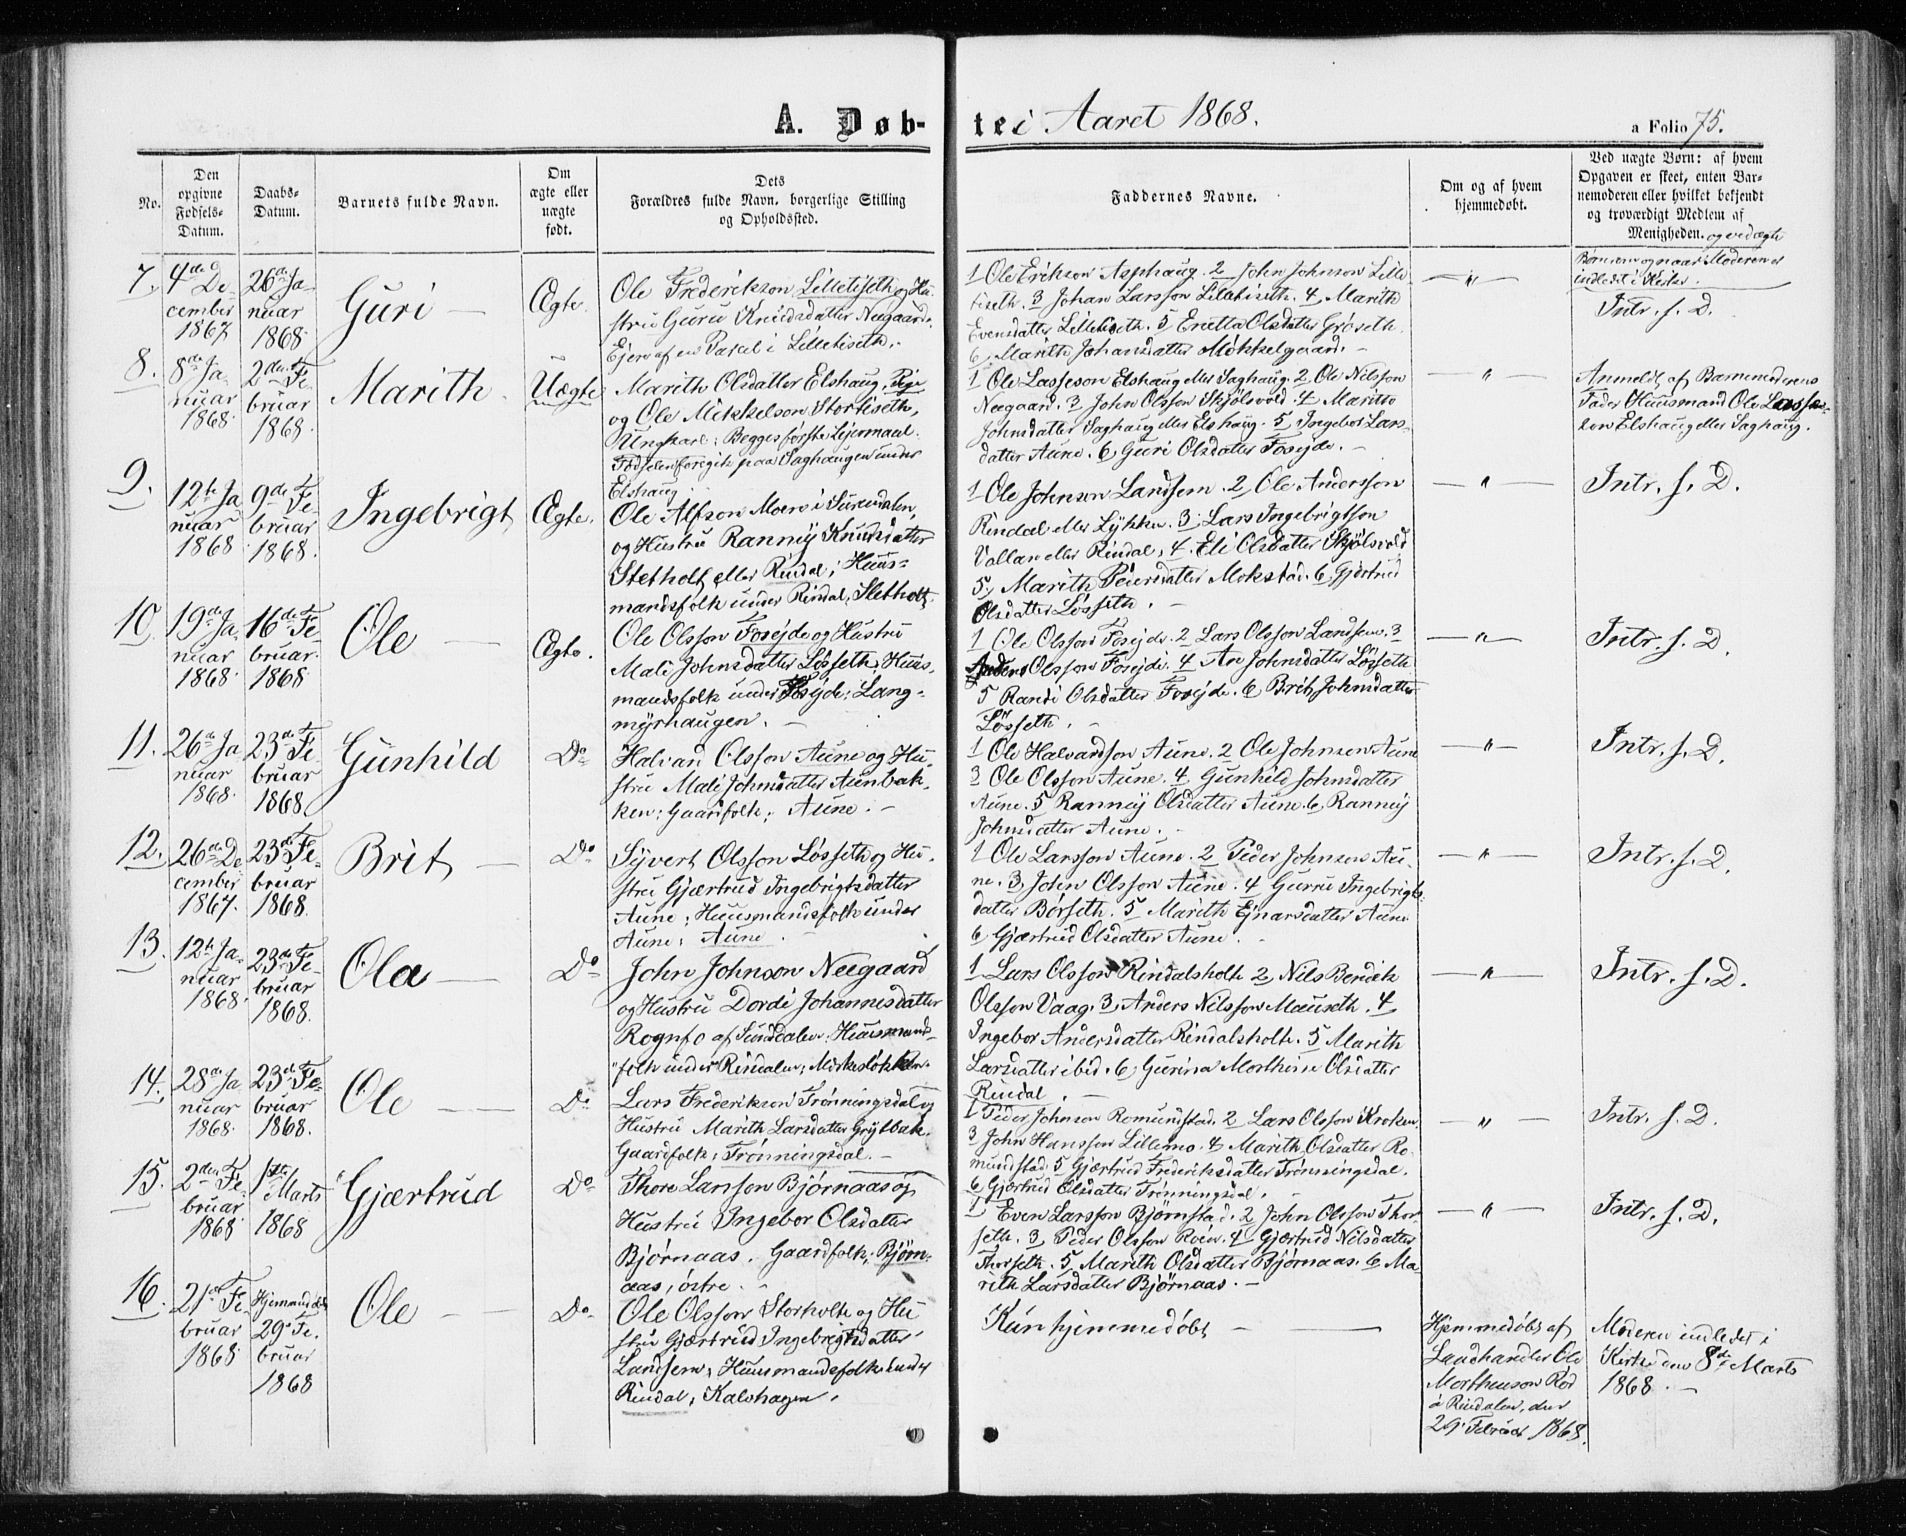 A. Døb-
te i Aaret 1868.
a Folio 75.
No.
Den
opgivne
Fødsels-
Datum.
Daabs-
Datum.
Barnets fulde Navn.
Om
ægte eller
uægte
født.
Dets
Forældres fulde Navn, borgerlige Stilling
og Opholdssted.
Faddernes Navne.
Om og af hvem
hjemmedøbt.
Ved uægte Børn: af hvem
Opgaven er skeet, enten Bar-
nemoderen eller hvilket bekjendt
og troværdigt Medlem af
Menigheden. og ved ægte
Børnene og naar Moderen er
indledet i Kirken.
7.
4de De
cember
1867
26de Ja
nuar
1868
Guri —
Ægte.
Ole Frederikson Lilletiseth og Hu
stru Guru Knudsdatter Neegaard.
Ejer af en Parcel i Lilletiseth.
1 Ole Erikson Asphaug. 2 John Johnson Lille
tiseth. 3 Johan Larsson Lilletiseth. 4 Marith
Evensdatter Lilletiseth. 5 Eretta Olsdatter Grøseth.
6, Marith Johansdatter Møkkelgaard. —
— " —
Intr. s. D.
8.
8de Ja
nuar
1868
2den Fe
bruar
1868.
Marith.
Uægte
Marith Olsdatter Elshaug, Pige
og Ole Mikkelson Stortiseth,
Ungkarl; Begges første Lejermaal.
Fødselen foregik paa Saghaugen under
Elshaug
1 Ole Lasseson Elshaug eller Saghaug. 2 Ole Nilsson
Neegaard. 3 John Olsson Skjølsvold. 4 Maritto
Johnsdatter Saghaug eller Elshaug. 5 Ingebor Lars-
datter Aune. 6 Guri Olsdatter Foseide. —
— " —
Anmeldt af Barnemoderens
Fader Huusmand Ole Lasse
son Elshaug eller Saghaug.
9.
12te Ja
nuar
1868
9de Fe
bruar
1868.
Ingebrigt
Ægte.
Ole Alfson Moen i Surendalen,
og Hustru Rannøy Knudsdatter
Sletholt eller Rindal; Huus-
mandsfolk under Rindal; Sletholt.
1 Ole Johnson Landsem. 2 Ole Andersson
Rindal eller Lykken. 3 Lars Ingebrigtson
Vollan eller Rindal, 4. Eli Olsdatter Skjølsvold
5, Marith Pedersdatter Mokstad. 6, Gjertrud
Olsdatter Løsseth. —
— " —
Intr. s. D.
10
19de Ja
nuar
1868
16de Fe
bruar.
1868
Ole —
Ægte.
Ole Olsson Foseide og Hustru
Mali Johnsdatter Løsseth, Huus-
mandsfolk under Foseide; Lang-
myrhaugen. —
1 Ole Olsson Foseide. 2 Lars Olsson Landsem. 3
Anders Olsson Foseide. 4 Ane Johnsdatter Løsseth
5 Randi Olsdatter Foseide. 6 Brit Johnsdatter
Løsseth. —
— " —
Intr. s. D.
11.
26de Ja
nuar
1868
23de Fe
bruar
1868
Gunhild
Do
Halvard Olsson Aune og Hu-
stru Mali Johnsdatter Aunbak-
ken; Gaardfolk; Aune. —
1 Ole Halvardsson Aune. 2 Ole Johnson Aune
3 Ole Olsson Aune. 4 Gunhild Johnsdatter
Aune. 5 Rannøy Olsdatter Aune. 6, Rannøy
Johnsdatter Aune. —
— " —
Intr. s. D.
12.
26de De
cember
1867.
23de Fe-
bruar
1868.
Brit —
Do
Syvert Olsson Løsseth og Hu-
stru Gjærtrud Ingebrigtsdatter
Aune; Huusmandsfolk under
Aune; Aune.
1 Ole Larsson Aune. 2 Peder Johnson Au-
ne. 3 John Olsson Aune. 4 Guru Ingebrigts
datter Børseth. 5 Marith Ejnarsdatter Aune
6 Gjærtrud Olsdatter Aune. —
— " —
Intr. s. D.
13.
12te Ja-
nuar
1868
23de Fe-
bruar
1868.
Ola —
Do
John Johnson Neegaard
og Hustru Dordi Johannesdatter
Rognfo af Sundalen; Huusmand-
folk under Rindalen; Mørkesløkken.
1 Lars Olsson Rindalsholt 2, Nils Bendik
Olsson Vaag. 3, Anders Nilsson Mauseth. 4
Ingebor Andersdatter Rindalsholt. 5 Marith
Larsdatter ibid. 6, Gurina Morthine Olsdatter
Rindal. —
— " —
Intr. s. D.
14.
28de Ja
nuar
1868
23de Fe-
bruar
1868.
Ole —
Do
Lars Frederikson Trønningsdal og
Hustru Marith Larsdatter Grytbak.
Gaardfolk; Trønningsdal. —
1 Peder Johnson Romundstad. 2 Lars Olsson Kroken
3 John Hansson Lillemo. 4 Marith Olsdatter Ro-
mundstad. 5 Gjærtrud Frederiksdatter Trønningsdal.
6 Gjærtrud Olsdatter Trønningsdal. —
— " —
Intr. s. D.
15.
2den Fe-
bruar
1868
1ste
Marts
1868
Gjærtrud
Do
Thore Larsson Bjørnaas og
Hustru Ingebor Olsdatter
Bjørnaas. Gaardfolk; Bjørn-
aas, østre. —
1 Even Larsson Bjørnstad. 2 John Olsson Thor
seth. 3, Peder Olsson Røen. 4 Gjærtrud Nilsdatter
Thorseth. 5 Marith Olsdatter Bjørnaas. 6 Ma-
rith Larsdatter Bjørnaas. —
— " —
Intr. s. D.
16.
21de Fe
bruar
1868
Hjemmedøbt
29de Fe.
bruar
1868
Ole —
Do
Ole Olsson Storholt og Hu
stru Gjærtrud Ingebrigtsdatter
Landsem, Huusmandsfolk under
Rindal; Kalvhagen.
Kun hjemmedøbt —
Hjemmedøbt af
Landhandler Ole
Morthenson Rød
i Rindalen, den
29de Februar 1868.
Moderen indledet i
Kirken den 8de Marts
1868. —